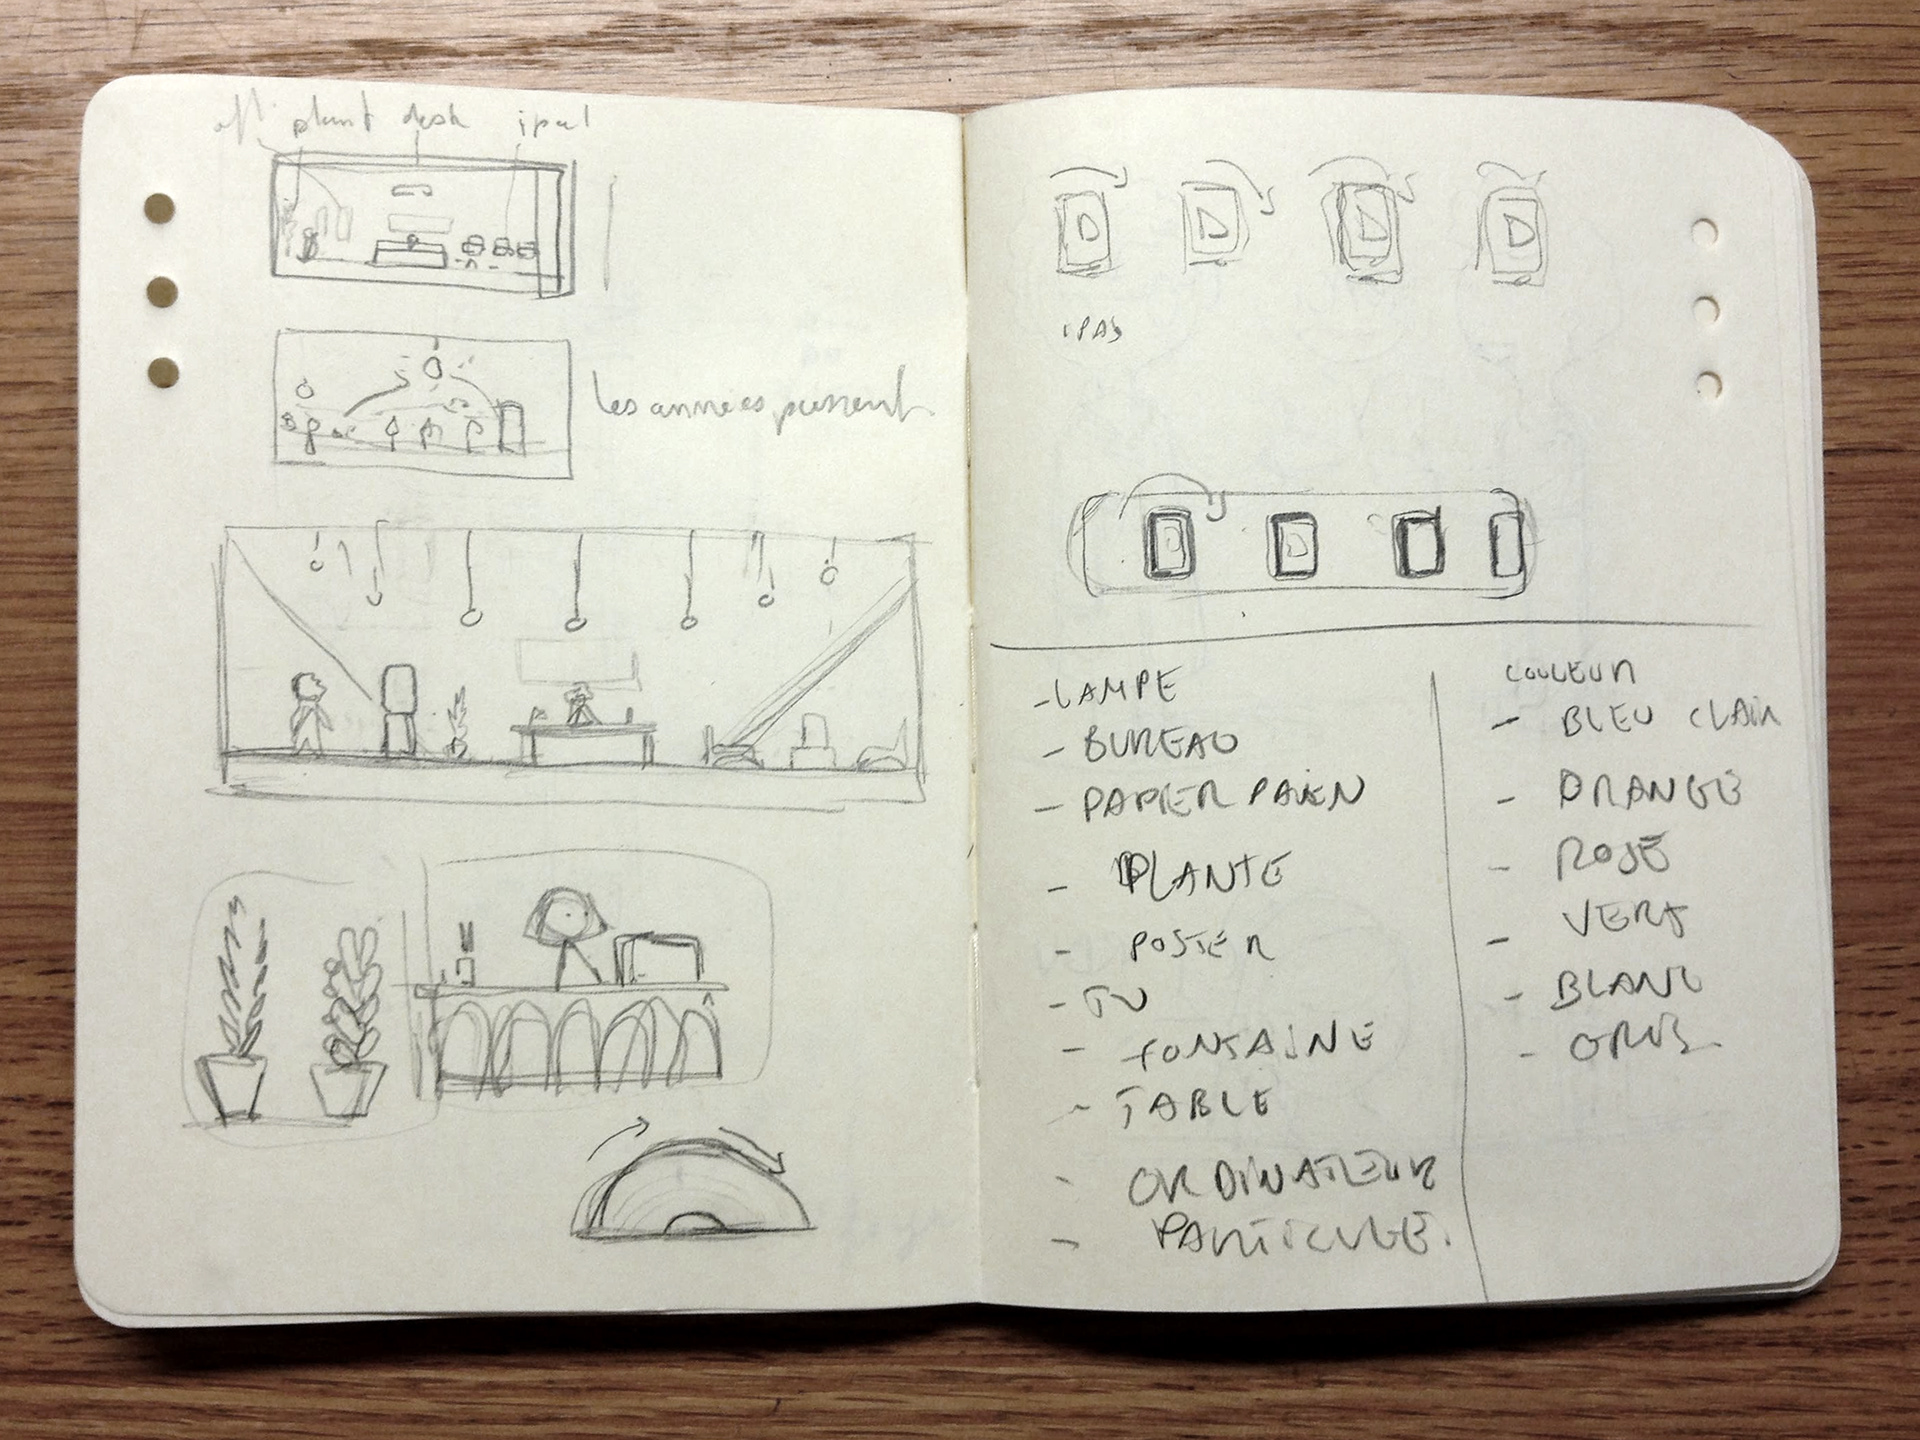 plant desk ipad
les années passent
D D D D
IPAD
D D
- LAMPE
- BUREAU
- PAPIER PAIEN
- PLANTE
- POSTER
- TV
- FONTAINE
- TABLE
- ORDINATEUR
- PARTICULE.
COULEUR
- BLEU CLAIR
- ORANGE
- ROSE
- VERT
- BLANC
- GRIS